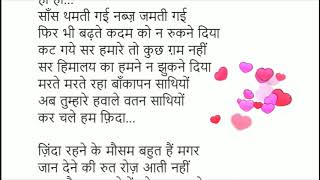 साँस थमती गई नब्ज़ जमती गई
फिर भी बढ़ते कदम को न रुकने दिया
कट गये सर हमारे तो कुछ ग़म नहीं
सर हिमालय का हमने न झुकने दिया
मरते मरते रहा बाँकापन साथियों
अब तुम्हारे हवाले वतन साथियों
कर चले हम फ़िदा...
ज़िंदा रहने के मौसम बहुत हैं मगर
जान देने की रुत रोज़ आती नहीं